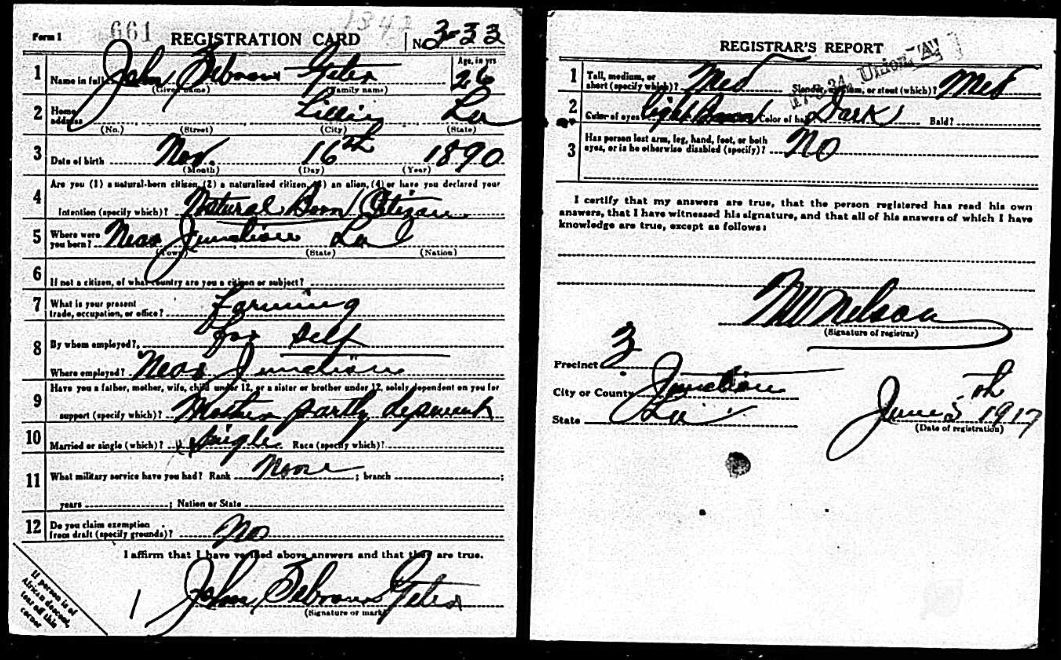 Form 1 661 REGISTRATION CARD No. 3-33
1 Name in full John Gates Age, in yrs 26
(Given name) (Family name)
2 Home address Lillie La
(No.) (Street) (City) (State)
3 Date of birth Nov. 16th 1890
(Month) (Day) (Year)
4 Are you (1) a natural-born citizen, (2) a naturalized citizen, (3) an alien, (4) or have you declared your
intention (specify which)? Natural Born Citizen
5 Where were you born? Near Junction La
(Town) (State) (Nation)
6 If not a citizen, of what country are you a citizen or subject?
7 What is your present trade, occupation, or office? Farming
8 By whom employed? for self
Where employed? Near Junction
9 Have you a father, mother, wife, child under 12, or a sister or brother under 12, solely dependent on you for
support (specify which)? Mother partly
10 Married or single (which)? Single Race (specify which)?
11 What military service have you had? Rank None ; branch ;
years ; Nation or State
12 Do you claim exemption from draft (specify grounds)? No
I affirm that I have verified above answers and that they are true.
John
(Signature or mark)
If person is of
African descent,
tear off this
corner
REGISTRAR'S REPORT
1 Tall, medium, or short (specify which)? Med Slender, medium, or stout (which)? Med
2 Color of eyes light Brown Color of hair Dark Bald?
3 Has person lost arm, leg, hand, foot, or both eyes, or is he otherwise disabled (specify)? No
I certify that my answers are true, that the person registered has read his own
answers, that I have witnessed his signature, and that all of his answers of which I have
knowledge are true, except as follows:
Nelson
(Signature of registrar)
Precinct 3
City or County Junction
State La
June 5th 1917
(Date of registration)